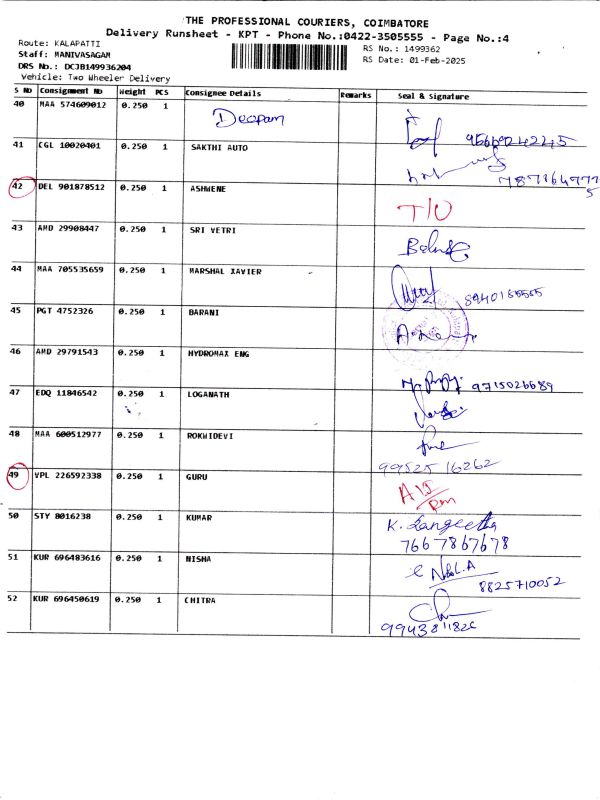 THE PROFESSIONAL COURIERS, COIMBATORE
Delivery Runsheet - KPT - Phone No.:0422-3505555 - Page No.:4
Route: KALAPATTI
RS No.: 1499362
Staff: MANIVASAGAM
RS Date: 01-Feb-2025
DRS No.: DCJB149936204
Vehicle: Two Wheeler Delivery
S No Consignment No Weight PCS Consignee Details Remarks Seal & Signature
40 MAA 574609012 0.250 1 Deepam
41 CGL 10020401 0.250 1 SAKTHI AUTO
42 DEL 901878512 0.250 1 ASHWENE T/U
43 AMD 29908447 0.250 1 SRI VETRI
44 MAA 705535659 0.250 1 MARSHAL XAVIER 8940165505
45 PGT 4752326 0.250 1 BARANI
46 AMD 29791543 0.250 1 HYDROMAX ENG 9715026689
47 EDQ 11846542 0.250 1 LOGANATH
48 MAA 600512977 0.250 1 ROKWIDEVI
9952516262
49 VPL 226592338 0.250 1 GURU
50 STY 8016238 0.250 1 KUMAR K. Sangeetha
7667867678
51 KUR 696483616 0.250 1 NISHA
8825710052
52 KUR 696450619 0.250 1 CHITRA
9943811826